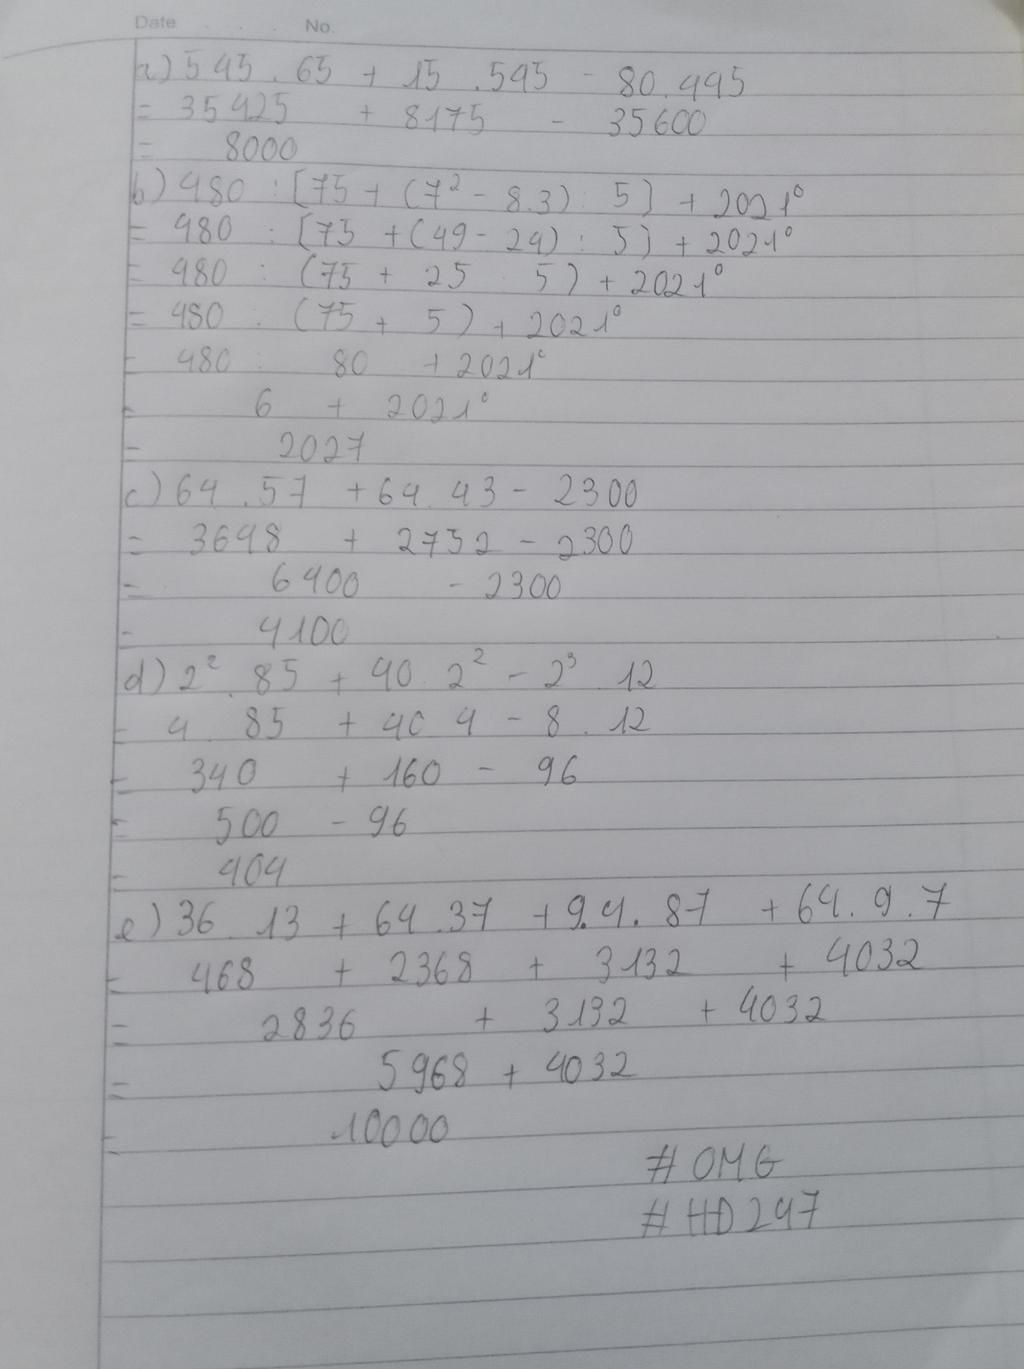 Date No.
a) 545 . 65 + 15 . 545 - 80.445
= 35425 + 8175 - 35600
= 8000
b) 480 : [75 + (7² - 8.3) : 5] + 2021⁰
= 480 : [75 + (49 - 24) : 5] + 2021⁰
= 480 : (75 + 25 : 5) + 2021⁰
= 480 : (75 + 5) + 2021⁰
= 480 : 80 + 2021⁰
= 6 + 2021⁰
= 2027
c) 64 . 57 + 64 . 43 - 2300
= 3648 + 2752 - 2300
= 6400 - 2300
= 4100
d) 2² . 85 + 40 . 2² - 2³ . 12
= 4 . 85 + 40 . 4 - 8 . 12
= 340 + 160 - 96
= 500 - 96
= 404
e) 36 . 13 + 64 . 37 + 9.4 . 87 + 64 . 9 . 7
= 468 + 2368 + 3132 + 4032
= 2836 + 3132 + 4032
= 5968 + 4032
= 10000
# OMG
# HD247